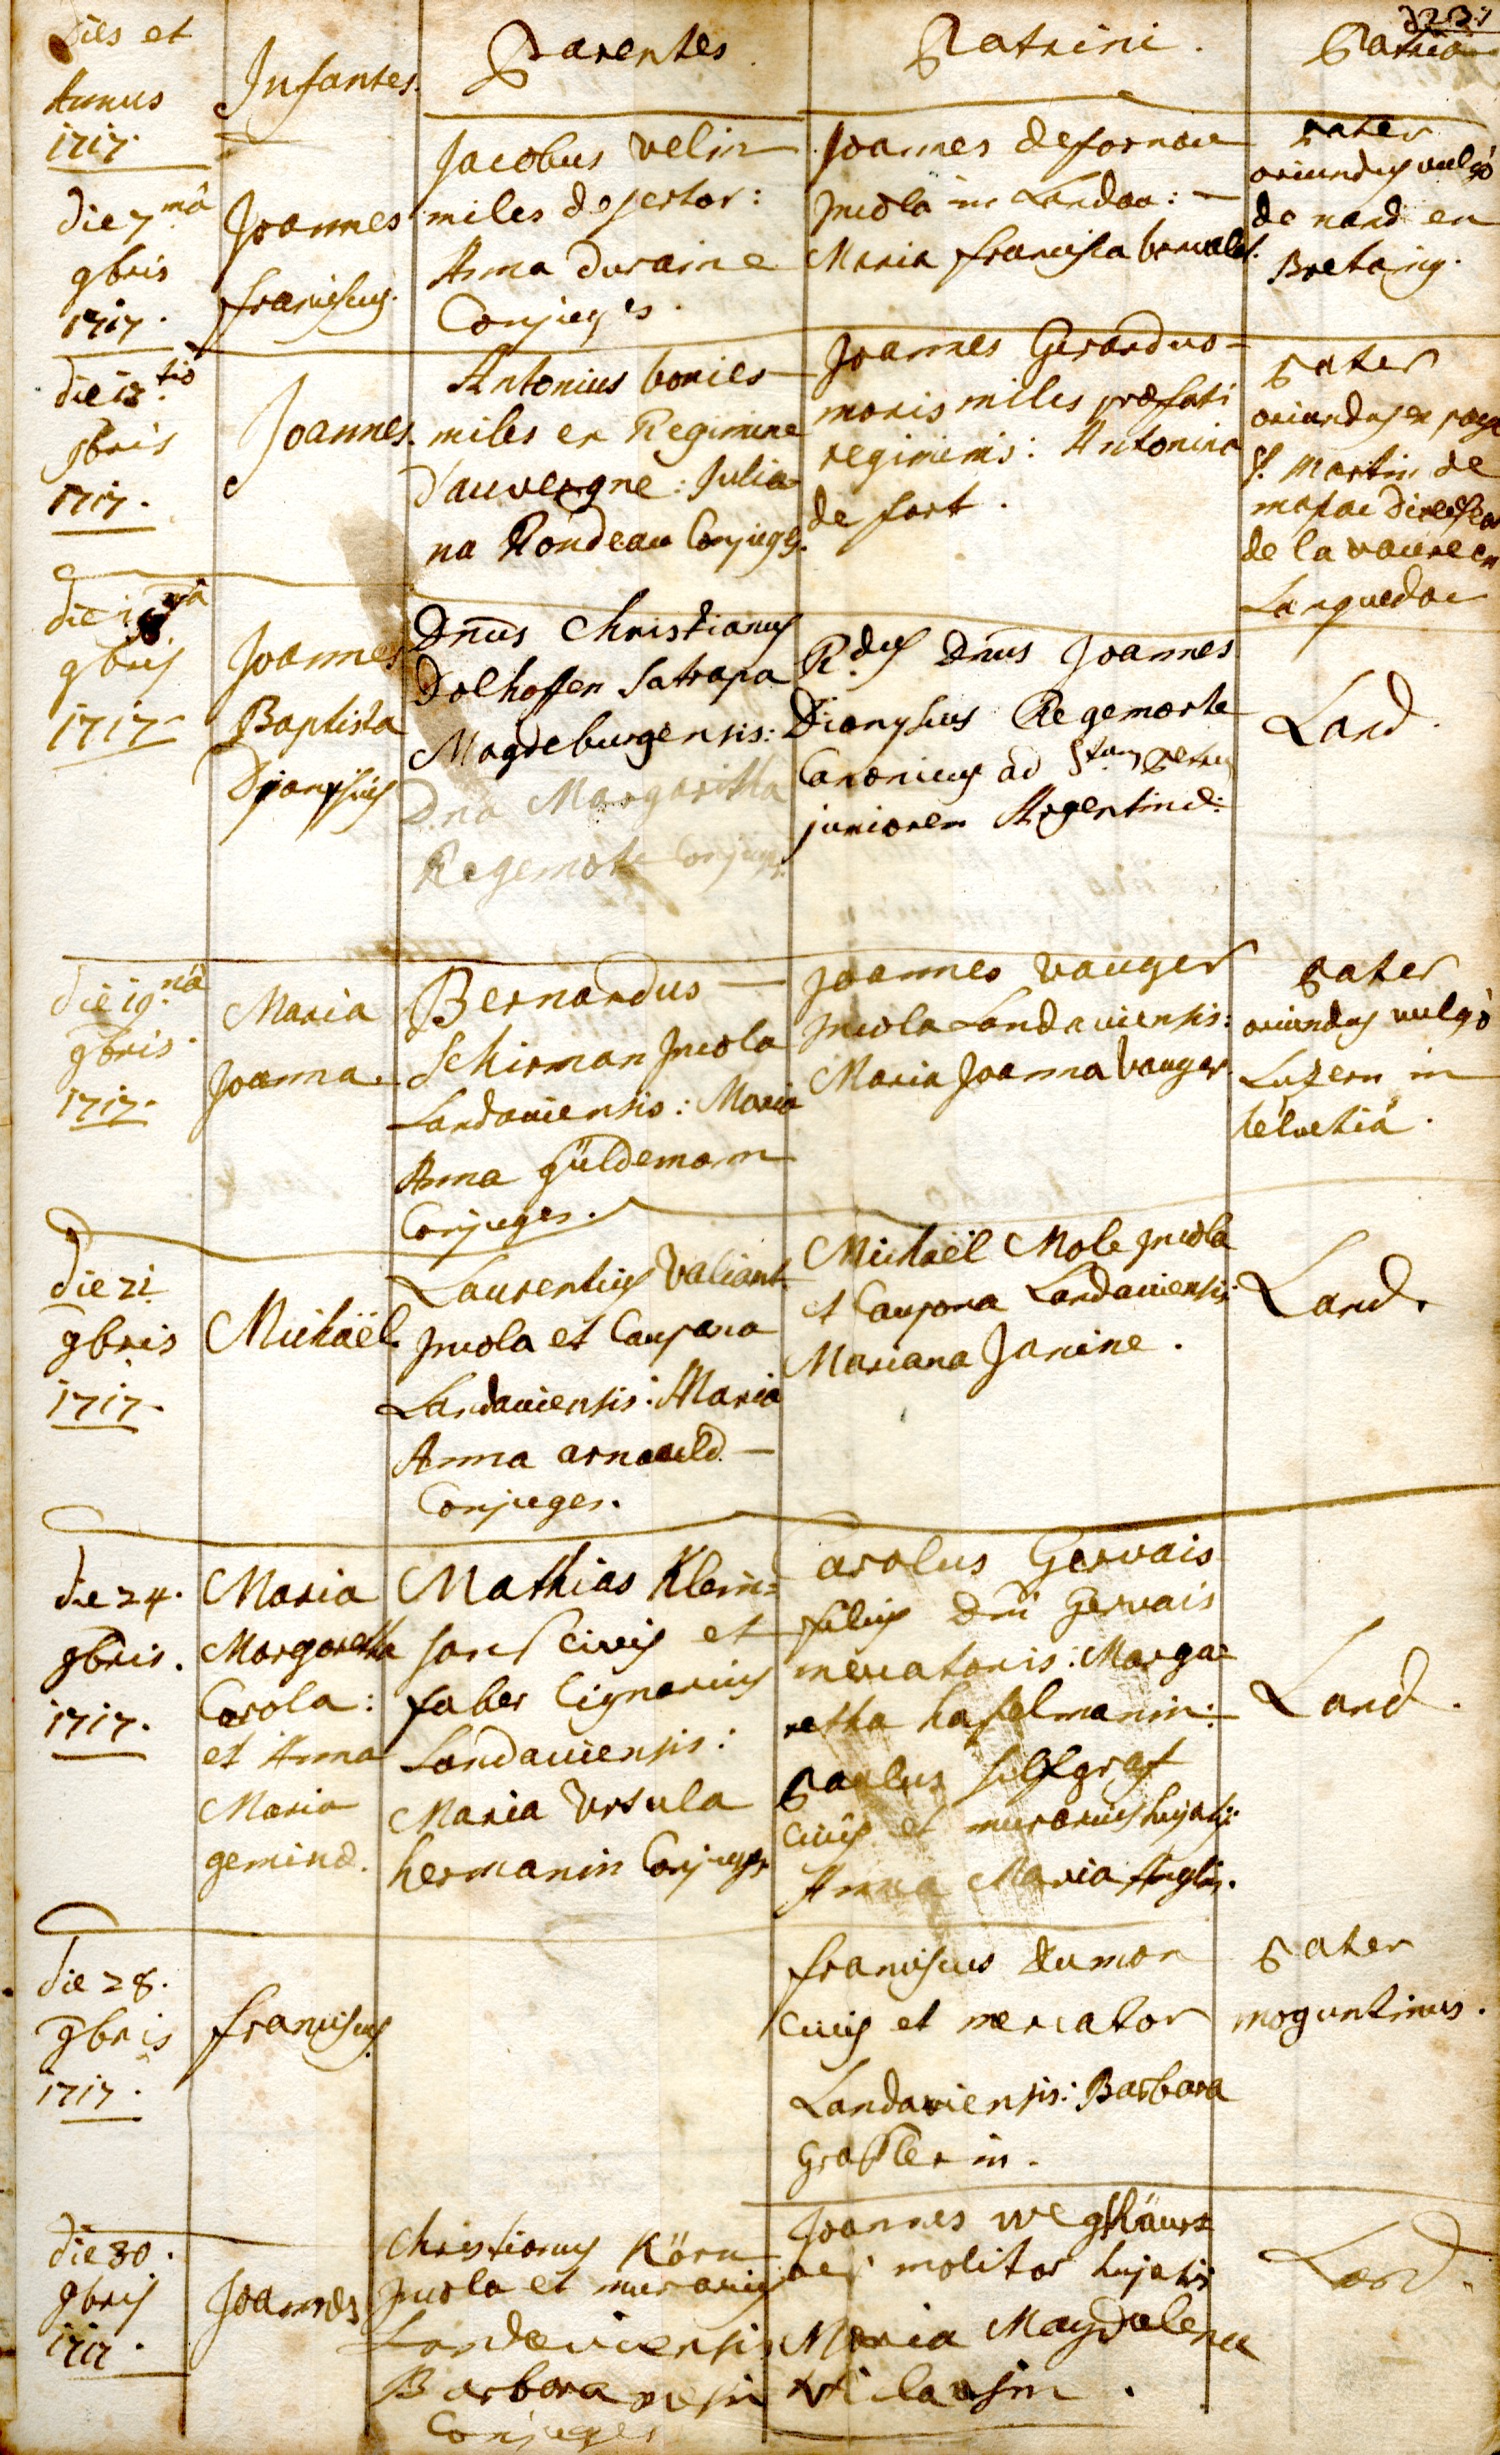 Dies et
Annus
1717.
Infantes.
Parentes
Patrini.
Patria
die 7.mâ
9bris
1717.
Joannes
franciscus.
Jacobus velin
miles desertor:
Anna duraine
Conjuges.
Joannes
Incola in Landau:
Maria francisca
pater
oriundus vulgò
de nand en
Bretaing.
die 13.tiò
9bris
1717.
Joannes.
Antonius bories
miles ex Regimine
d'auvergne: Julia-
na Rondeau Conjuges.
Joannes Gerardus
moris miles præfati
regiminis: Antonina
de fort.
pater
oriundus ex
St. Martin de
de la vaure en
Languedoc
die
9bris
1717.
Joannes
Baptista
Dionysius
Dnus Christianus
Dolhoffen Satrapa
Magdeburgensis:
Dna Margaritha
Regemorte Conjuges.
R.dus Dnus Joannes
Dionysius Regemorte
Canonicus ad Stum Petrum
juniorem Argentinæ:
Land.
die 19.nâ
9bris.
1717.
Maria
Joanna.
Bernardus
Schirman Incola
Landaviensis: Maria
Anna güldemann
Conjuges.
Joannes vauger
Incola Landaviensis:
Maria Joanna vauger
pater
oriundus vulgò
Luzern in
helvetiâ.
die 21
9bris
1717.
Michaël
Laurentius Valiant
Incola et Caupona
Landaviensis: Maria
Anna arnauld
Conjuges.
Michaël Mole Incola
et Caupona Landaviensis:
Mariana Janine.
Land.
die 24.
9bris.
1717.
Maria
Margaretha
Carola:
et Anna
Maria
geminæ.
Mathias Klein=
civis et
faber lignarius
Landaviensis:
Maria Ursula
hermanin Conjuges.
Carolus Gervais
filius Dni Gervais
mercatoris: Marga=
retha haselmanin:
Paulus
civis et murarius hujatis:
Anna Maria
Land.
die 28.
9bris
1717.
franciscus
franciscus dumon
civis et mercator
Landaviensis: Barbara
Grasslerin.
Pater
moguntinus.
die 30.
9bris
1717.
Joannes
Christianus Körn
Incola et murarius
Landaviensis
Barbara
Conjuges
Joannes
molitor hujatis
Maria Magdalena
Land.